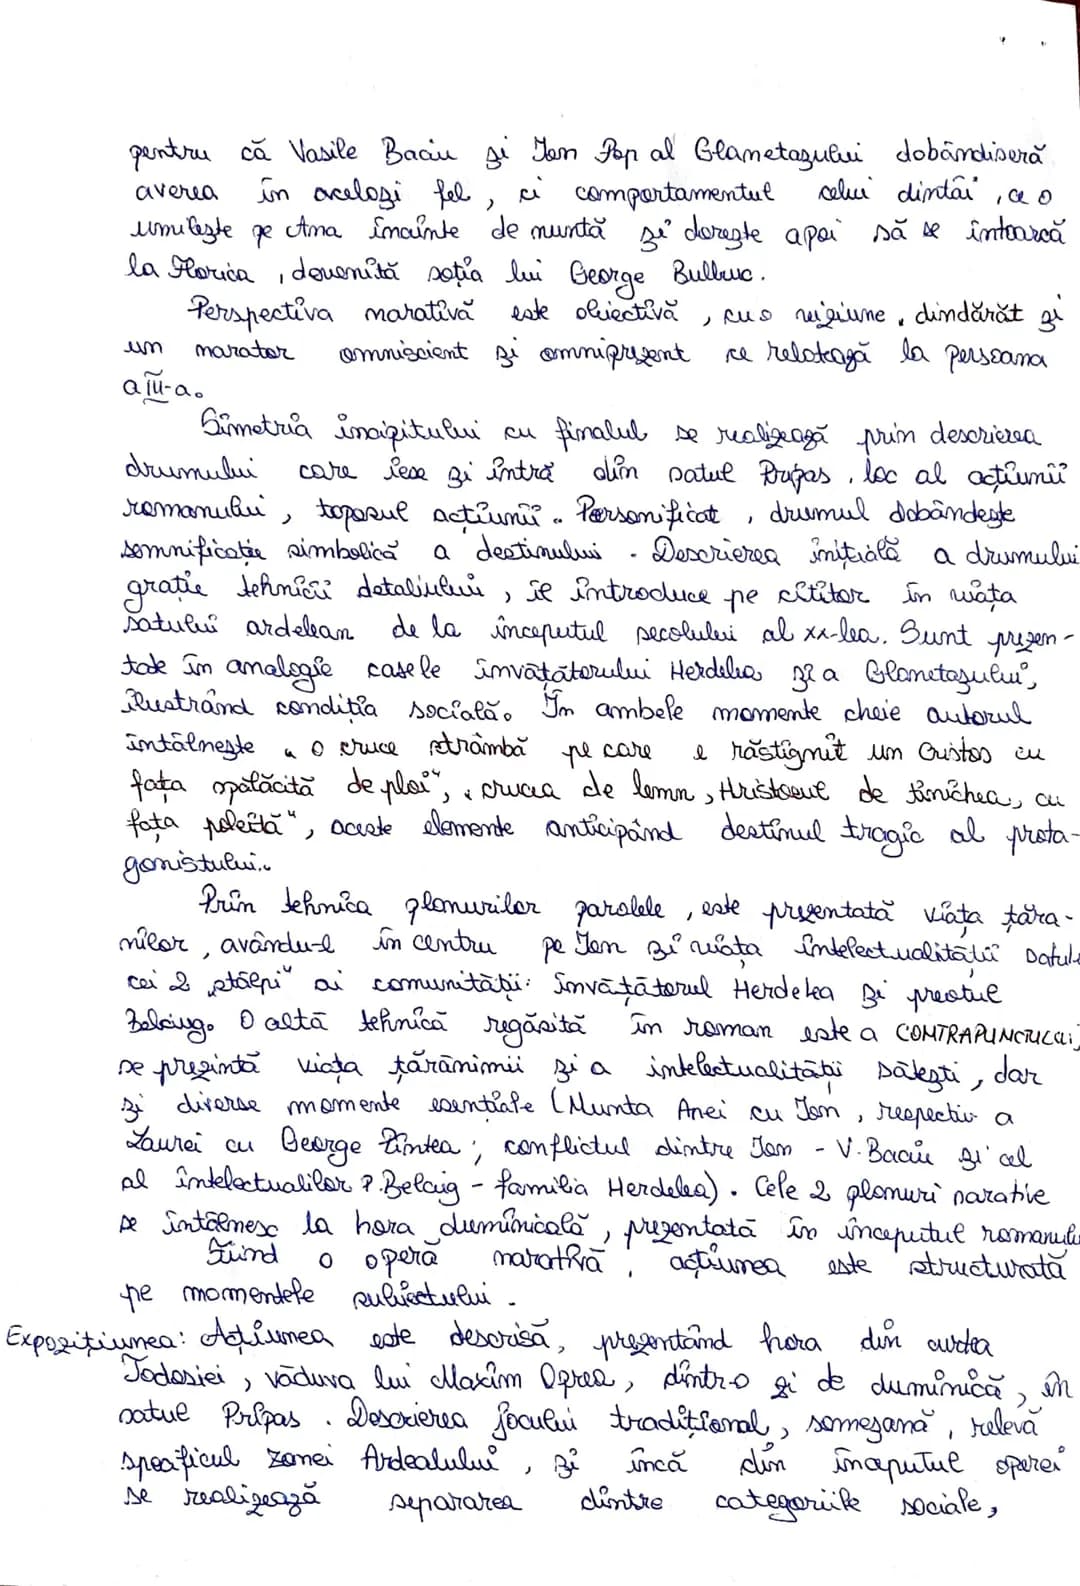 pentru că Vasile Baciu și Ion Pop al Glanetașului dobândiseră
averea în același fel, ci comportamentul celui dintâi, ce o
umilește pe Ana înainte de nuntă și dorește apoi să se întoarcă
la Florica, devenită soția lui George Bulbuc.
Perspectiva narativă este obiectivă, cu o viziune „dindărăt și
un narator omniscient și omniprezent ce relatează la persoana
a III-a.
Simetria incipitului cu finalul se realizează prin descrierea
drumului care iese și intră din satul Pripas, loc al acțiunii
romanului, toposul acțiunii. Personificat, drumul dobândește
semnificație simbolică a destinului. Descrierea inițială a drumului
grație tehnicii detaliului, îl introduce pe cititor în viața
satului ardelean de la începutul secolului al XX-lea. Sunt prezen-
tate în analogie casele învățătorului Herdelea și a Glanetașului,
ilustrând condiția socială. În ambele momente cheie autorul
întâlnește „o cruce strâmbă pe care e răstignit un Cristos cu
fața spălăcită de ploi", „crucea de lemn, Hristosul de tinichea, cu
fața poleită", aceste elemente anticipând destinul tragic al prota-
gonistului.
Prin tehnica planurilor paralele, este prezentată viața țăra-
nilor, avându-l în centru pe Ion și viața intelectualității satului
cei 2 „stâlpi" ai comunității: învățătorul Herdelea și preotul
Belciug. O altă tehnică regăsită în roman este a CONTRAPUNCTULUI;
se prezintă viața țărănimii și a intelectualității sătești, dar
și diverse momente esențiale (Nunta Anei cu Ion, respectiv a
Laurei cu George Pintea; conflictul dintre Ion - V. Baciu și cel
al intelectualilor P. Belciug - familia Herdelea). Cele 2 planuri narative
se întâlnesc la hora duminicală, prezentată în începutul romanului
Fiind o operă narativă, acțiunea este structurată
pe momentele subiectului.
Expozițiunea: Acțiunea este descrisă, prezentând hora din curtea
Todosiei, văduva lui Maxim Oprea, dintr-o zi de duminică, în
satul Pripas. Descrierea jocului tradițional, someșană, relevă
specificul zonei Ardealului, și încă din începutul operei
se realizează separarea dintre categoriile sociale,